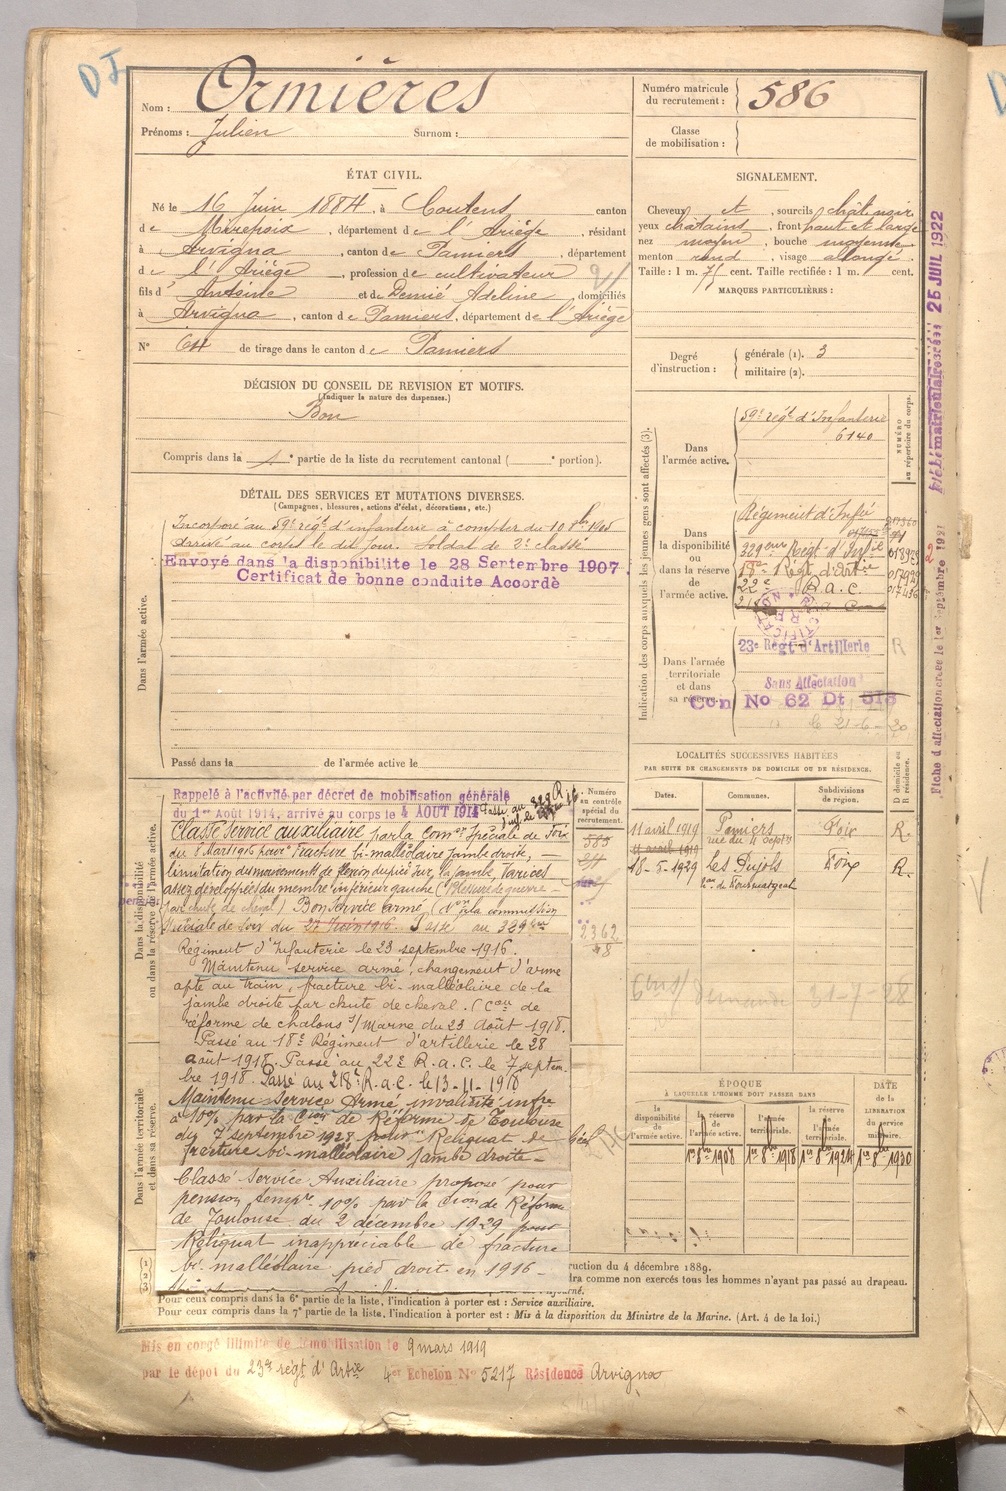 DI
Nom : Ormières
Prénoms : Julien Surnom :
Numéro matricule du recrutement : 586
Classe de mobilisation :
ÉTAT CIVIL.
Né le 16 Juin 1884, à Coutens canton
de Mirepoix, département de l'Ariège, résidant
à Arvigna, canton de Pamiers, département
de l'Ariège, profession de cultivateur
fils d' Antoine et de Demié Adeline, domiciliés
à Arvigna, canton de Pamiers, département de l'Ariège
N° 64 de tirage dans le canton de Pamiers
SIGNALEMENT.
Cheveux et, sourcils chât noir
yeux châtains, front haut et large
nez moyen, bouche moyenne
menton rond, visage allongé
Taille : 1 m. 71 cent. Taille rectifiée : 1 m. cent.
MARQUES PARTICULIÈRES :
Degré d'instruction : générale (1). 3
militaire (2).
DÉCISION DU CONSEIL DE REVISION ET MOTIFS.
(Indiquer la nature des dispenses.)
Bon
Compris dans la 1e partie de la liste du recrutement cantonal ( e portion).
DÉTAIL DES SERVICES ET MUTATIONS DIVERSES.
(Campagnes, blessures, actions d'éclat, décorations, etc.)
Dans l'armée active.
Incorporé au 59e régt d'infanterie à compter du 10 8bre 1905
arrivé au corps le dit jour. Soldat de 2e classe
Envoyé dans la disponibilite le 28 Septembre 1907.
Certificat de bonne conduite Accordé
Passé dans la de l'armée active le
Indication des corps auxquels les jeunes gens sont affectés (3).
NUMÉRO au répertoire du corps.
Dans l'armée active.
59e régt d'Infanterie
6140
Dans la disponibilité ou dans la réserve de l'armée active.
Régiment d'Infie
329eme Régt d'Infie
18e Régt d'Artie
22e R.a.c.
Dans l'armée territoriale et dans sa réserve.
23e Régt d'Artillerie R
Sans Affectation
Con No 62 Dt SIS
le 21-6-30
LOCALITÉS SUCCESSIVES HABITÉES
PAR SUITE DE CHANGEMENTS DE DOMICILE OU DE RÉSIDENCE.
Dates. Communes. Subdivisions de région. D domicile ou R résidence.
11 avril 1919 Pamiers Foix R.
rue du 4 Septre
11 avril 1919
18-5-1929 Les Pujols Foix R.
31-7-28
Dans la disponibilité ou dans la réserve de l'armée active.
Rappelé à l'activité par décret de mobilisation générale
du 1er Août 1914, arrivé au corps le 4 AOUT 1914
Classé service auxiliaire par la Comon Spéciale de Foix
du 8 Mars 1916 pour Fracture bi-malléolaire jambe droite,
limitation du mouvement de flexion du pied sur la jambe, Varices
assez développées du membre inférieur gauche (Blessure de guerre
par chute de cheval) Bon service armé (Don de la commission
Spéciale de Foix du 27 Juin 1916. Passé au 329eme
Régiment d'Infanterie le 23 septembre 1916.
Maintenu service armé, changement d'arme
apte au train, fracture bi-malléolaire de la
jambe droite par chute de cheval. (Con de
réforme de chalons s/Marne du 23 Août 1918.
Passé au 18e Régiment d'artillerie le 28
août 1918. Passé au 22e R.a.c. le 7 septem-
bre 1918. Passé au 218e R.a.c. le 13-11-1918
Maintenu Service Armé invalidité infre
à 10% par la Cion de Réforme de Toulouse
du 7 septembre 1928 pour Reliquat de
fracture bi-malléolaire jambe droite-
Classé Service Auxiliaire proposé pour
pension tempre 10% par la Cion de Réforme
de Toulouse du 2 décembre 1929 pour
Reliquat inappréciable de fracture
bi malléolaire pied droit en 1916-
Dans l'armée territoriale et dans sa réserve.
Numéro au contrôle spécial du recrutement.
585
2362
ÉPOQUE
À LAQUELLE L'HOMME DOIT PASSER DANS
la disponibilité de l'armée active. la réserve de l'armée active. l'armée territoriale. la réserve de l'armée territoriale. DATE de la LIBÉRATION du service militaire.
1er 8bre 1908 1er 8bre 1918 1er 8bre 1924 1er 8bre 1930
(1)
(2)
(3)
ruction du 4 décembre 1889.
dra comme non exercés tous les hommes n'ayant pas passé au drapeau.
Pour ceux compris dans la 6e partie de la liste, l'indication à porter est : Service auxiliaire.
Pour ceux compris dans la 7e partie de la liste, l'indication à porter est : Mis à la disposition du Ministre de la Marine. (Art. 4 de la loi.)
Mis en congé illimité de démobilisation le 9 mars 1919
par le dépôt du 23e régt d'Artie 4er Echelon No 5217 Résidence Arvigna
25 JUIL 1922